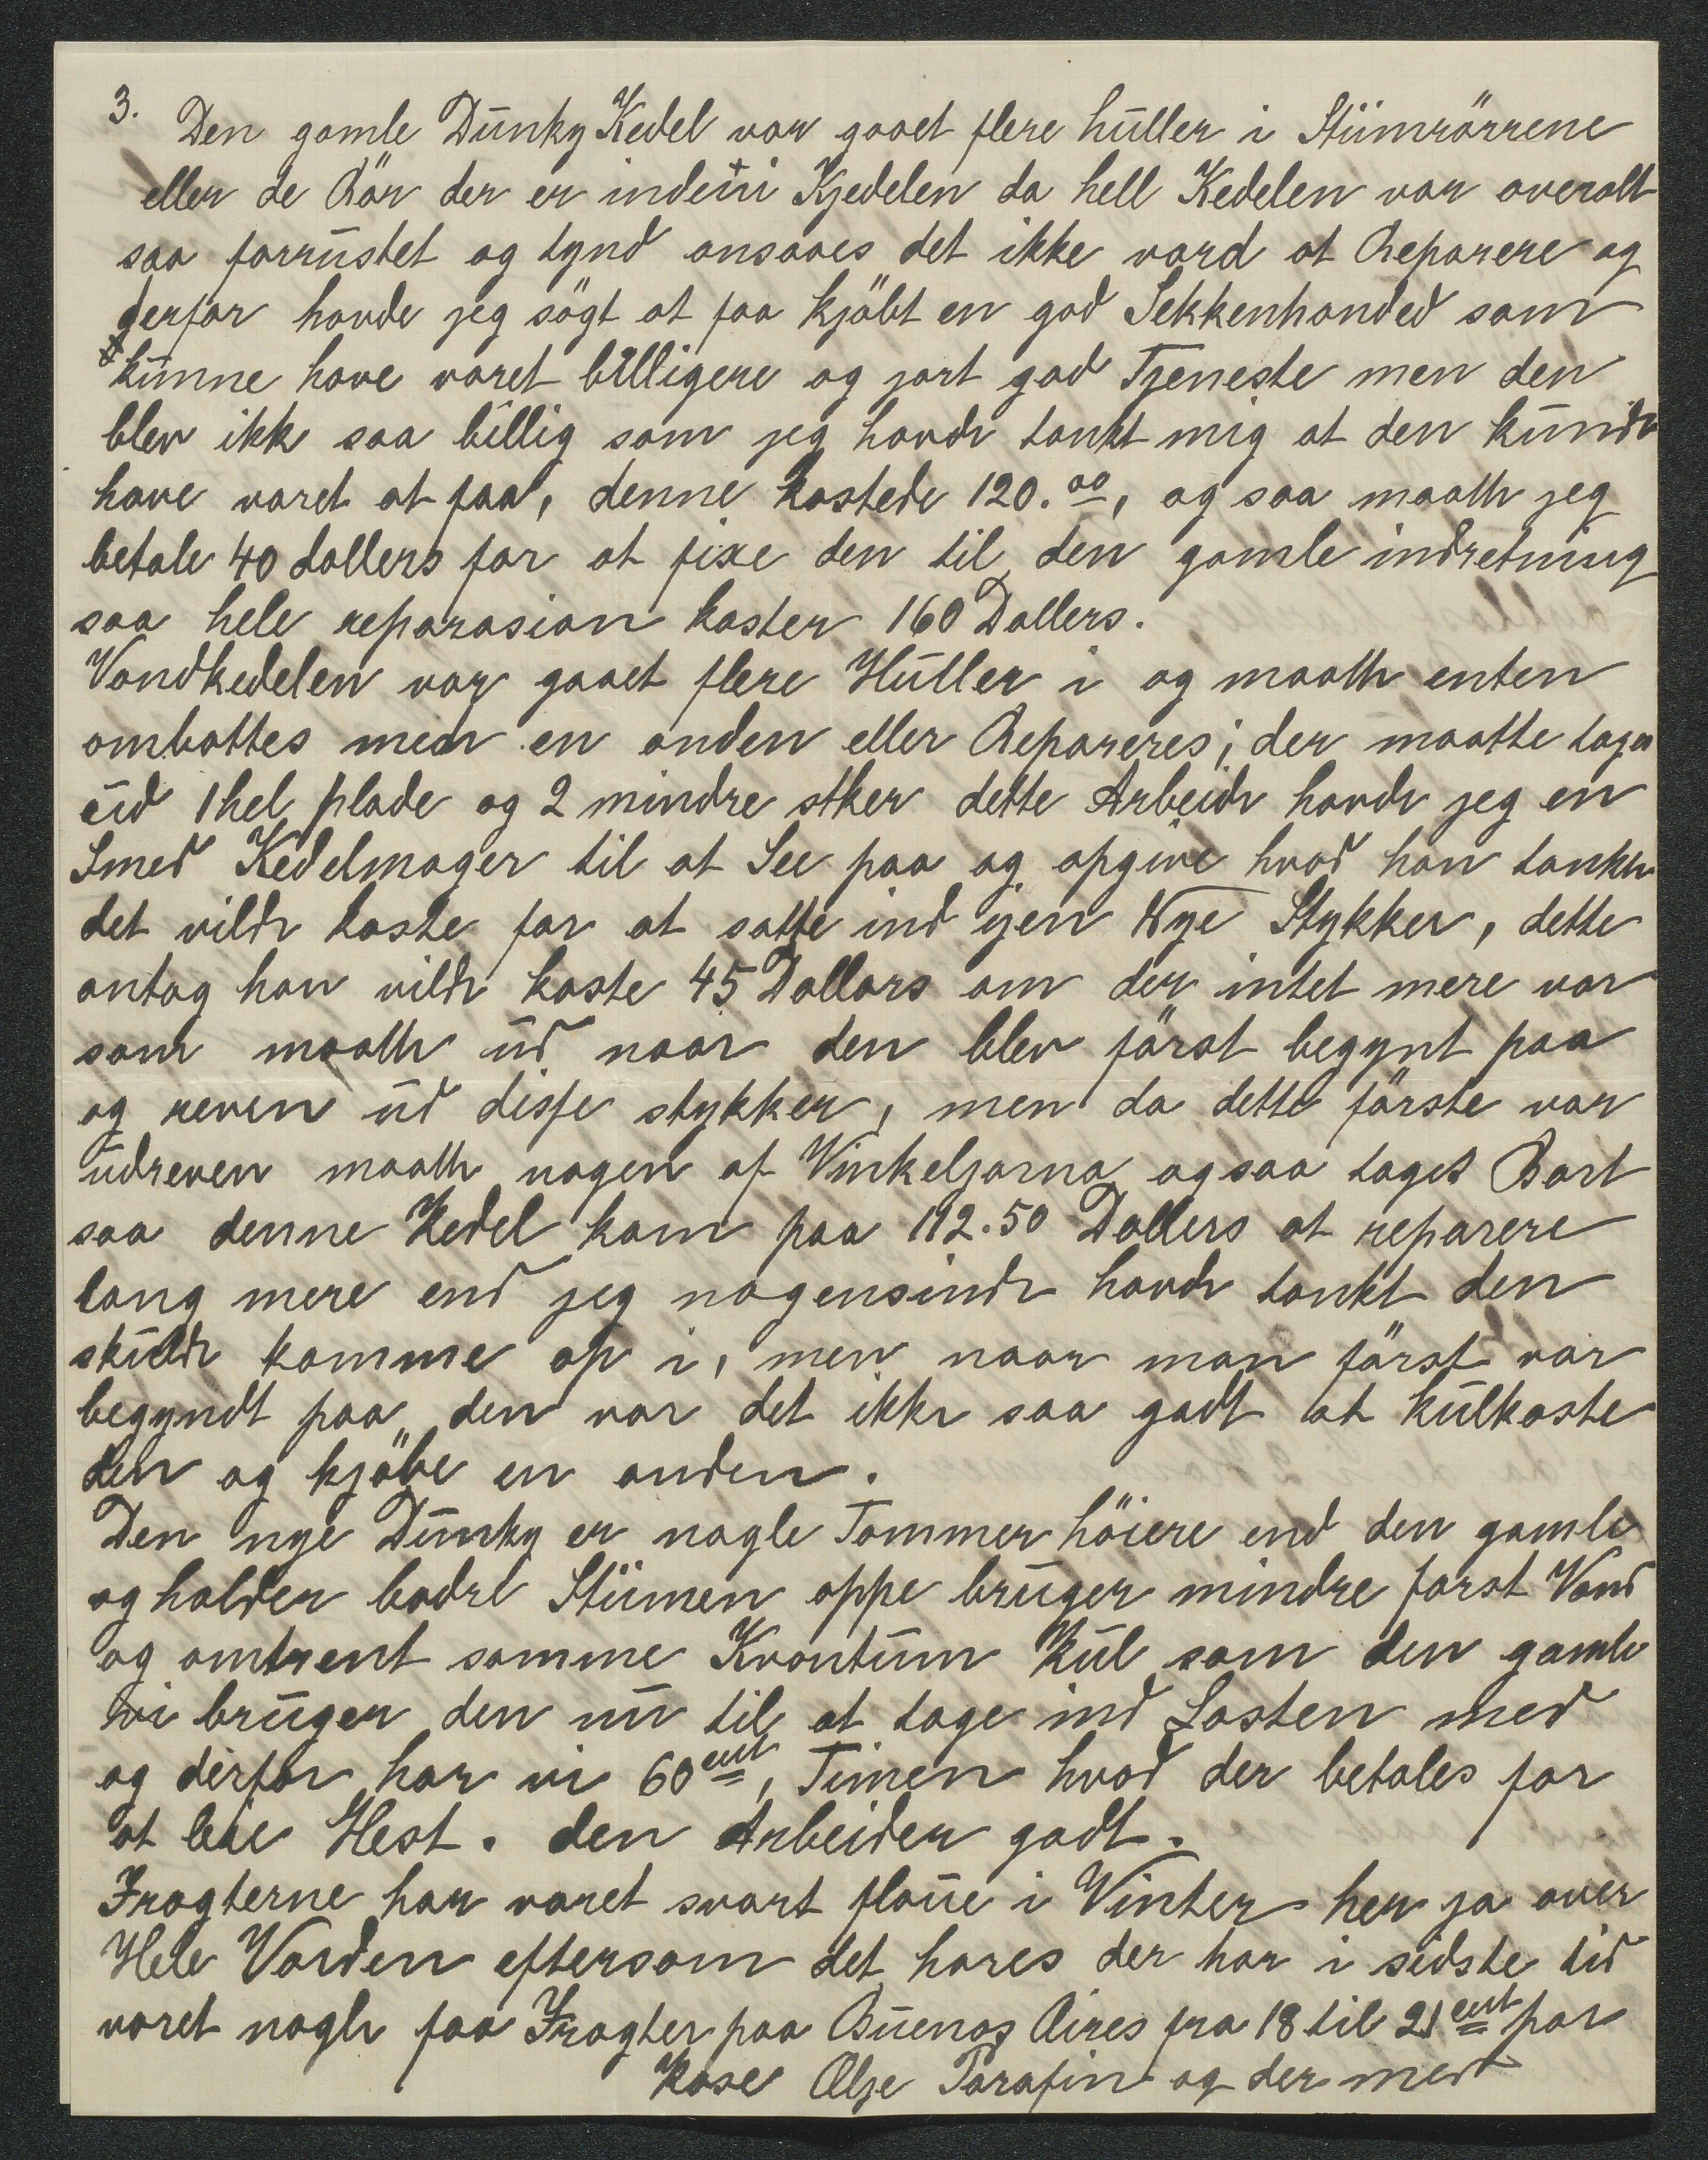 3. Den gamle Dunky Kedel var gaaet flere huller i Stümrörrene
eller de Rör der er indeni Kjedelen da hell Kedelen var overalt
saa forrustet og tynd ansaaes det ikke værd at Reparere og
derfor havde jeg sögt at faa kjöbt en god Sekkenhanded som
kunne have været billigere og jort god Tjeneste men den
blev ikk saa billig som jeg havde tænkt mig at den kunde
have været at faa, denne kostede 120.00, og saa maatte jeg
betale 40 dollers for at fixe den til den gamle indretning
saa hele reparasion koster 160 Dollers.
Vandkedelen var gaaet flere Huller i og maatte enten
ombattes med en anden eller Repareres; der maatte tages
ud 1 hel plade og 2 mindre stker dette Arbeide havde jeg en
Smed Kedelmager til at See paa og opgive hvad han tænkte
det vilde koste for at sætte ind ijen Nye Stykker, dette
antog han vilde koste 45 Dollars om der intet mere var
som maatte ud naar den blev först begynt paa
og reven ud disse stykker, men da dette förste var
udreven maatte nogen af Vinkeljarna ogsaa taget Bort
saa denne Kedel kom paa 112.50 Dollers at reparere
lang mere end jeg nogensinde havde tænkt den
skulde komme op i, men naar man först var
begyndt paa den var det ikke saa godt at kulkaste
den og kjöbe en anden.
Den nye Dunky er nogle Tommer höiere end den gamle
og holder bædre Stümen oppe bruger mindre farst Vand
og omtrent samme Kvantum Kul som den gamle
vi bruger den nu til at tage ind Lasten med
og derfor har vi 60 cent, Timen hvad der betales for
at leie Hest. den Arbeider godt.
Fragterne har været svært flaue i Vinter her ja over
Hele Værden eftersom det hores der har i sidste tid
været nogle faa Fragter paa Buenos Aires fra 18 til 21 cent par
Kase Olje Parafin og der med